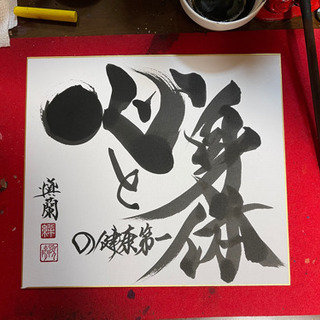 身体
心と
の健康第一